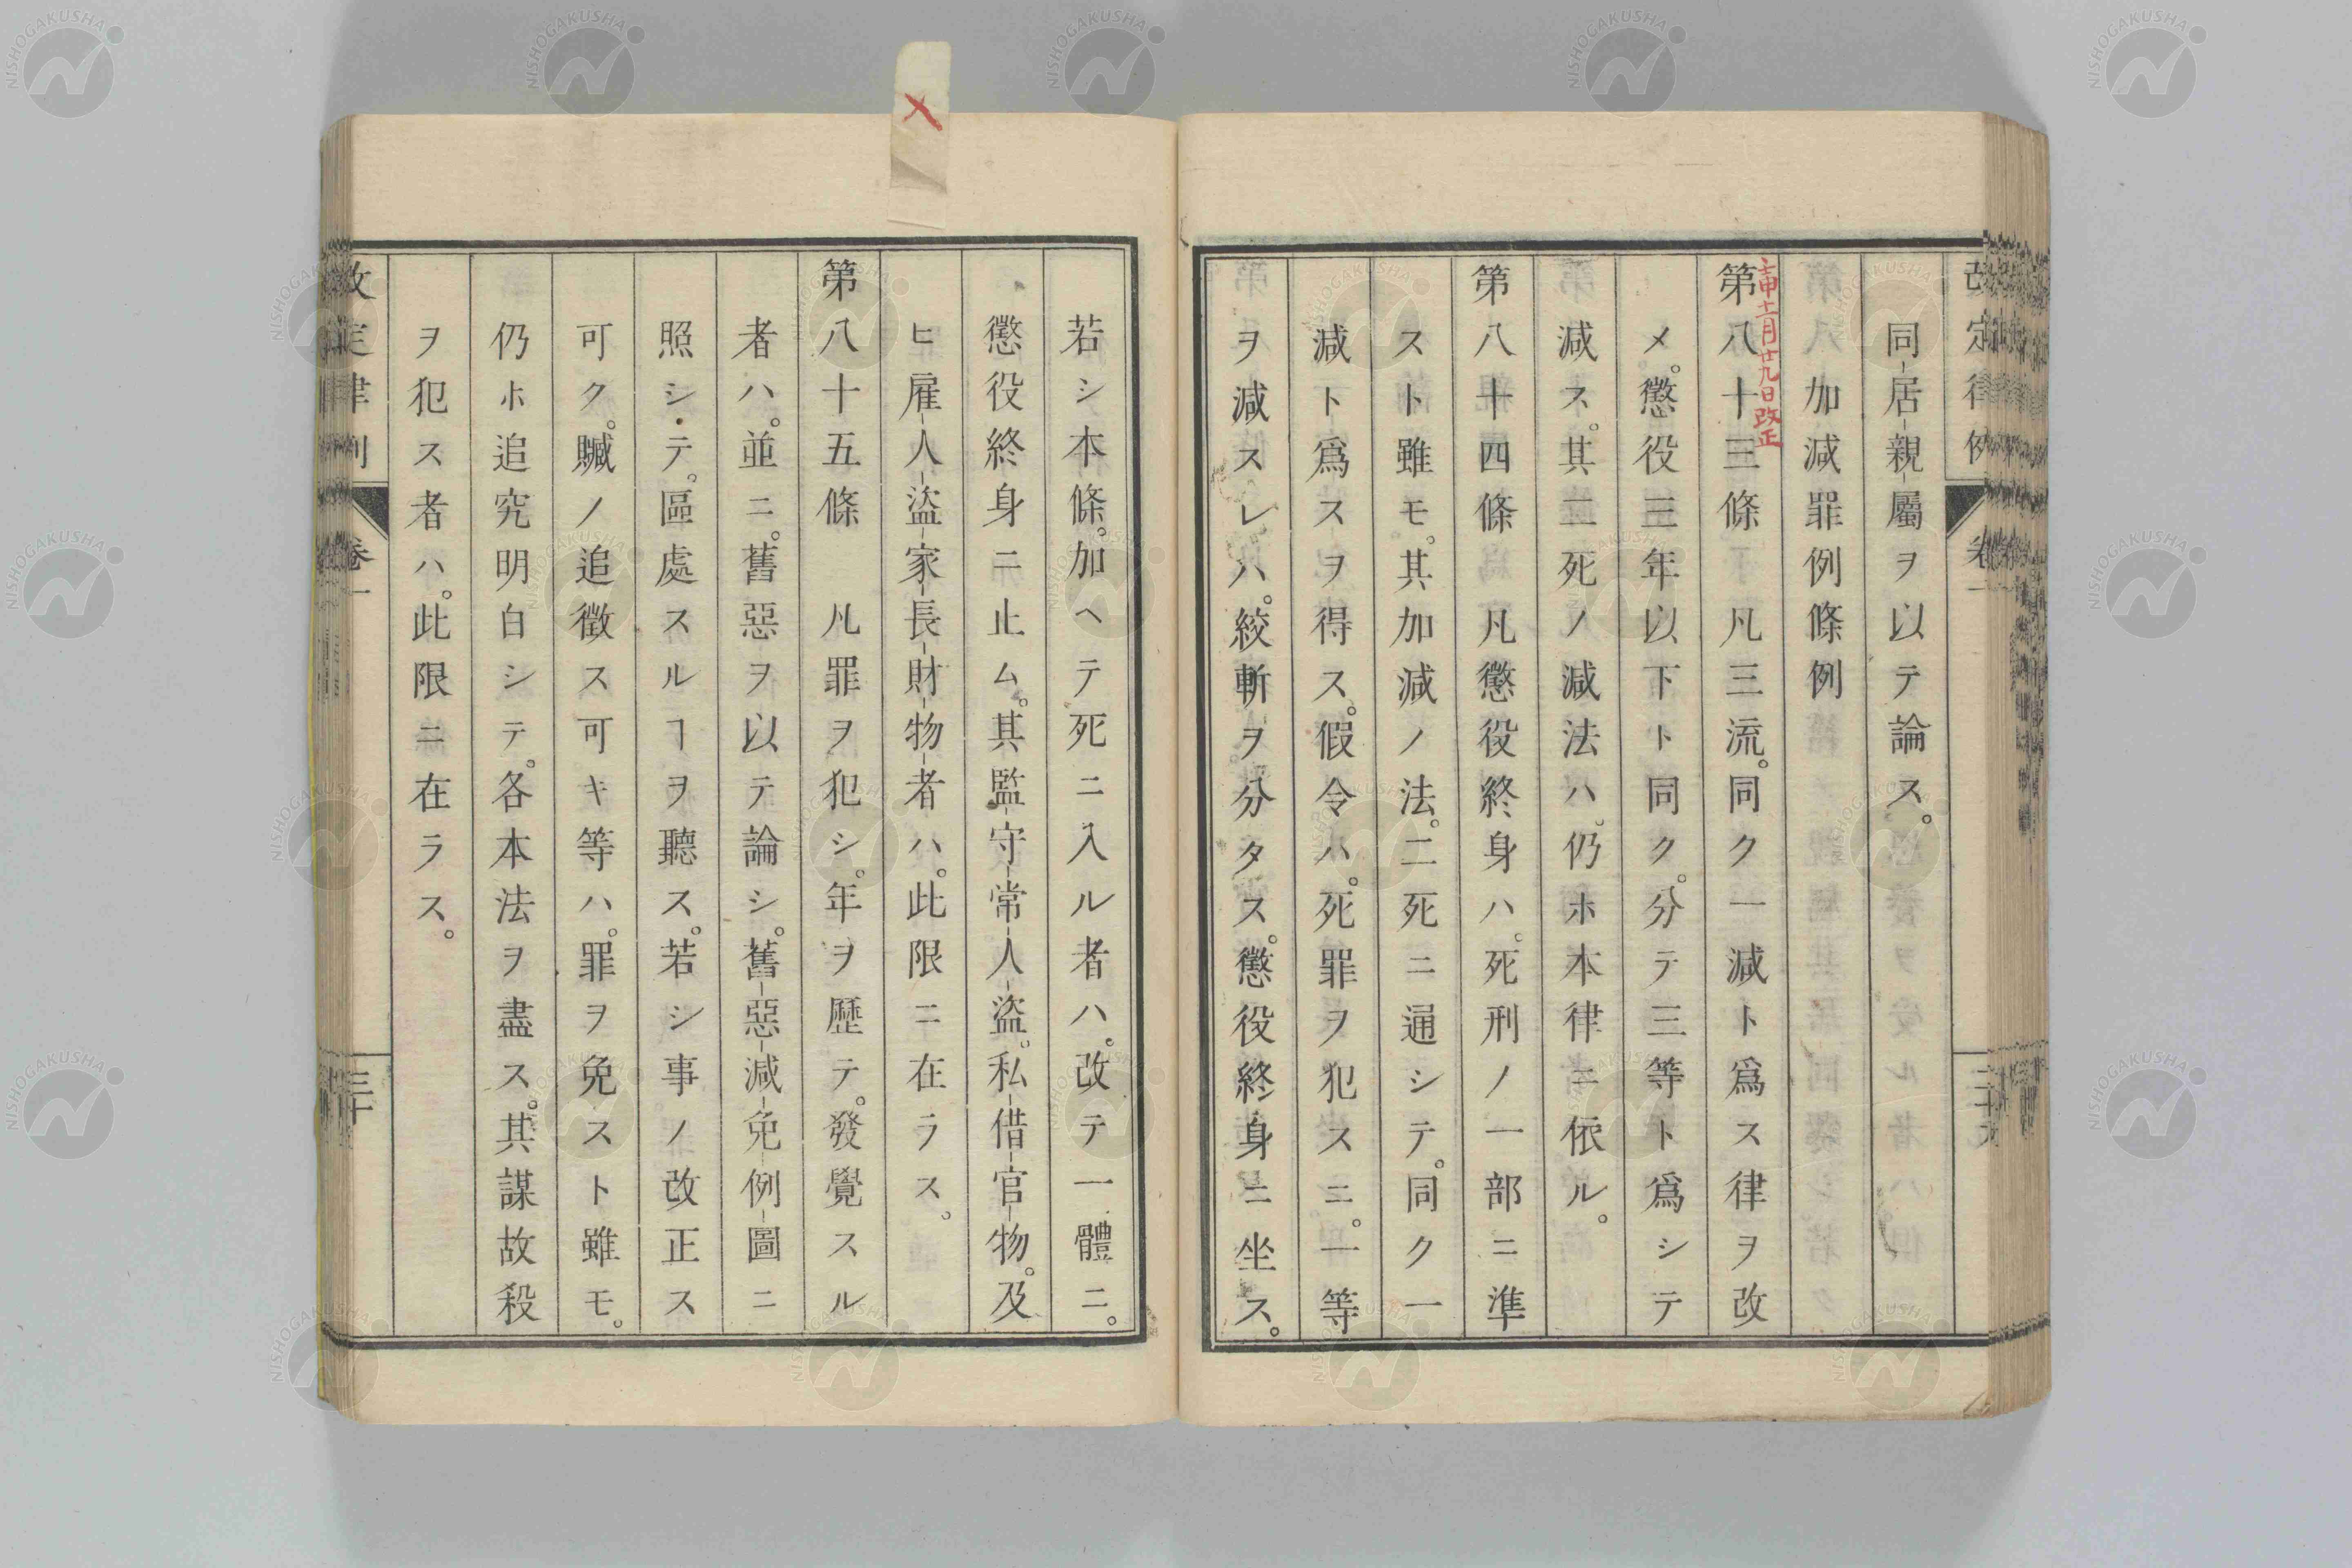 改定律例 卷一 二十九
同居親屬ヲ以テ論ス。
加減罪例條例
壬申十一月廿九日改正
第八十三條 凡三流。同ク一減ト爲ス律ヲ改
メ。懲役三年以下ト同ク。分テ三等ト爲シテ
減ス。其二死ノ減法ハ。仍ホ本律ニ依ル。
第八十四條 凡懲役終身ハ。死刑ノ一部ニ準
スト雖モ。其加減ノ法。二死ニ通シテ。同ク一
減ト爲スヲ得ス。假令ハ。死罪ヲ犯スニ。一等
ヲ減スレハ。絞斬ヲ分タス。懲役終身ニ坐ス。
若シ本條。加ヘテ死ニ入ル者ハ。改テ一體ニ。
懲役終身ニ止ム。其監守常人盜。私借官物。及
ヒ雇人盜家長財物者ハ。此限ニ在ラス。
第八十五條 凡罪ヲ犯シ。年ヲ歷テ。發覺スル
者ハ。並ニ。舊惡ヲ以テ論シ。舊惡減免例圖ニ
照シテ。區處スルヿヲ聽ス。若シ事ノ改正ス
可ク。贓ノ追徵ス可キ等ハ。罪ヲ免スト雖モ。
仍ホ追究明白シテ。各本法ヲ盡ス。其謀故殺
ヲ犯ス者ハ。此限ニ在ラス。
改定律例 卷一 三十
NISHOGAKUSHA